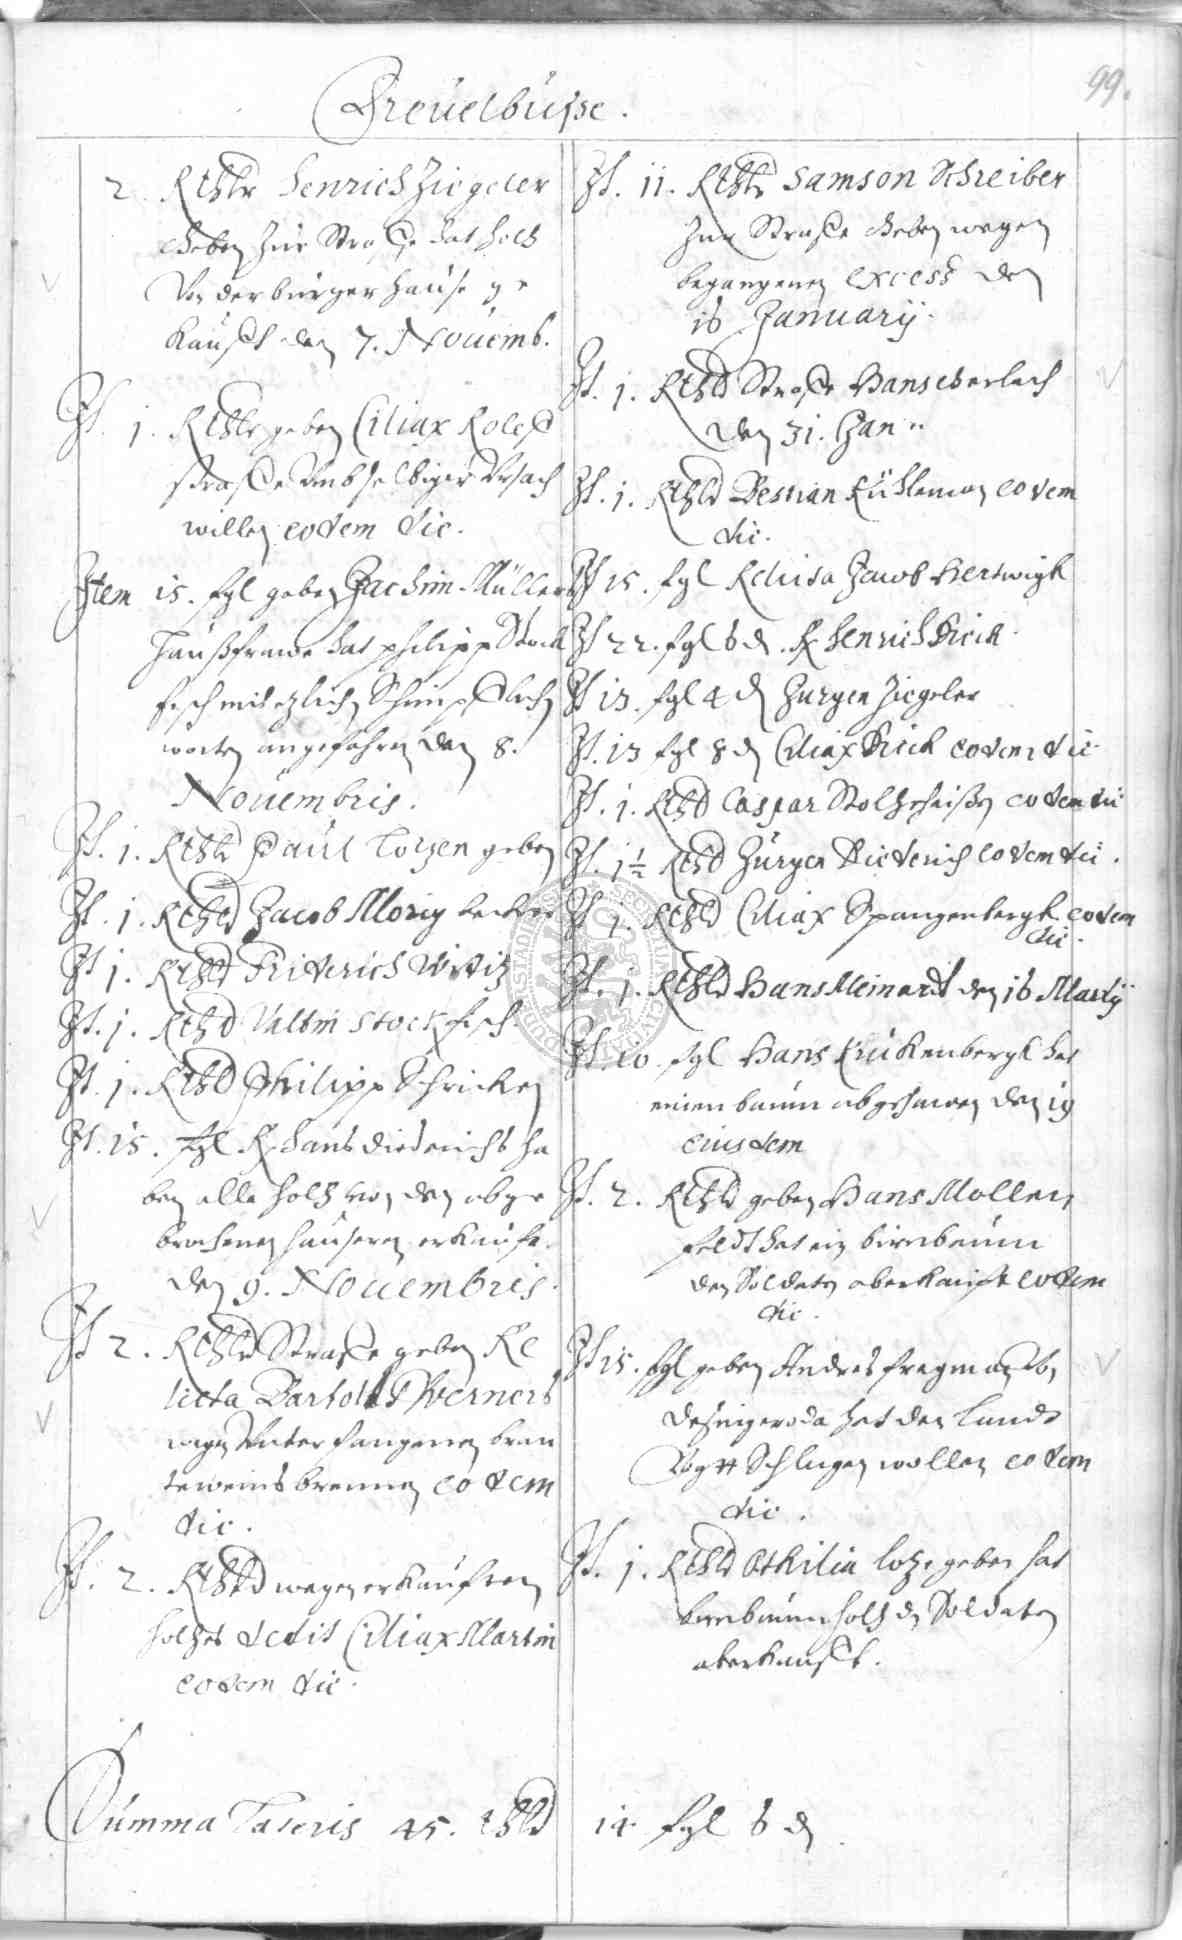 99.
Freuelbusse.
2 Rthlr Henrich Ziegeler
Geben zur Straffe hat holtz
Von der bürger hause ge
kaufft den 7. Nouemb.
It. j. Rthlr geben Ciliax
straffe Umb selbiger Ursach
willen eodem die.
Item 15. sgl geben Jachim Müllers
Haußfrawe hat philipp Stock
fisch mit etzlichen Schimpflichen
worten angefahren den 8.
Nouembris.
It. j. Rthlr Paul Lotzen geben
It. j. Rthlr Jacob Morig becker
It j. Rthlr Friderich
It. j. Rthlr Valtin Stockfisch
It. j. Rthlr Philipp Schricken
It. 15. sgl R. Hans Diederichs ha
ben alle holtz von den abge
brochenen häuseren erkaufft
den 9. Nouembris.
It 2. Rthlr Straffe geben Re
licta Bartoldt Werners
wegen Unterfangenen bran
teweins brennen eodem
die.
It. 2. Rthlr wegen erkaufften
holtzes dedit Ciliax Martin
eodem die.
It. 11. Rthlr Samson Schreiber
zur Straffe Geben wegen
begangenen excess den
16 January.
It. j. Rthlr Straffe Hans Eberlach
den 31. Jan..
It. j. Rthlr Bestian Kühleman eodem
die.
It 15. sgl Relicta Jacob Hertwigk
It 22. sgl 6 d. R Henrich Rick
It 13. sgl 4 d Jurgen Ziegeler
It. 13 sgl 8 d Ciliax Rick eodem die
It. j. Rthlr Caspar Stoltzeheißen eodem die
It. j ½ Rthlr Jürgen Diederich eodem die.
It j. Rthlr Ciliax Spangenbergk eodem
die.
It. j. Rthlr Hans Meinardt den 16 Martij
It. 10. sgl Hans Krükenbergk hat
einen baum abgehawen den 19
eiusdem
It. 2. Rthlr geben Hans Mollen
feldt hat ein birnbaum
den Soldaten aberkauft eodem
die.
It 15. sgl geben Andres von
Desingeroda hat den Landt
Vogtt Schlagen wollen eodem
die.
It. j. Rthlr Othilia Lotze geben hat
birnbaumholtz d. Soldaten
aberkaufft.
Summa Lateris 45. Rthlr 14. sgl 6 d